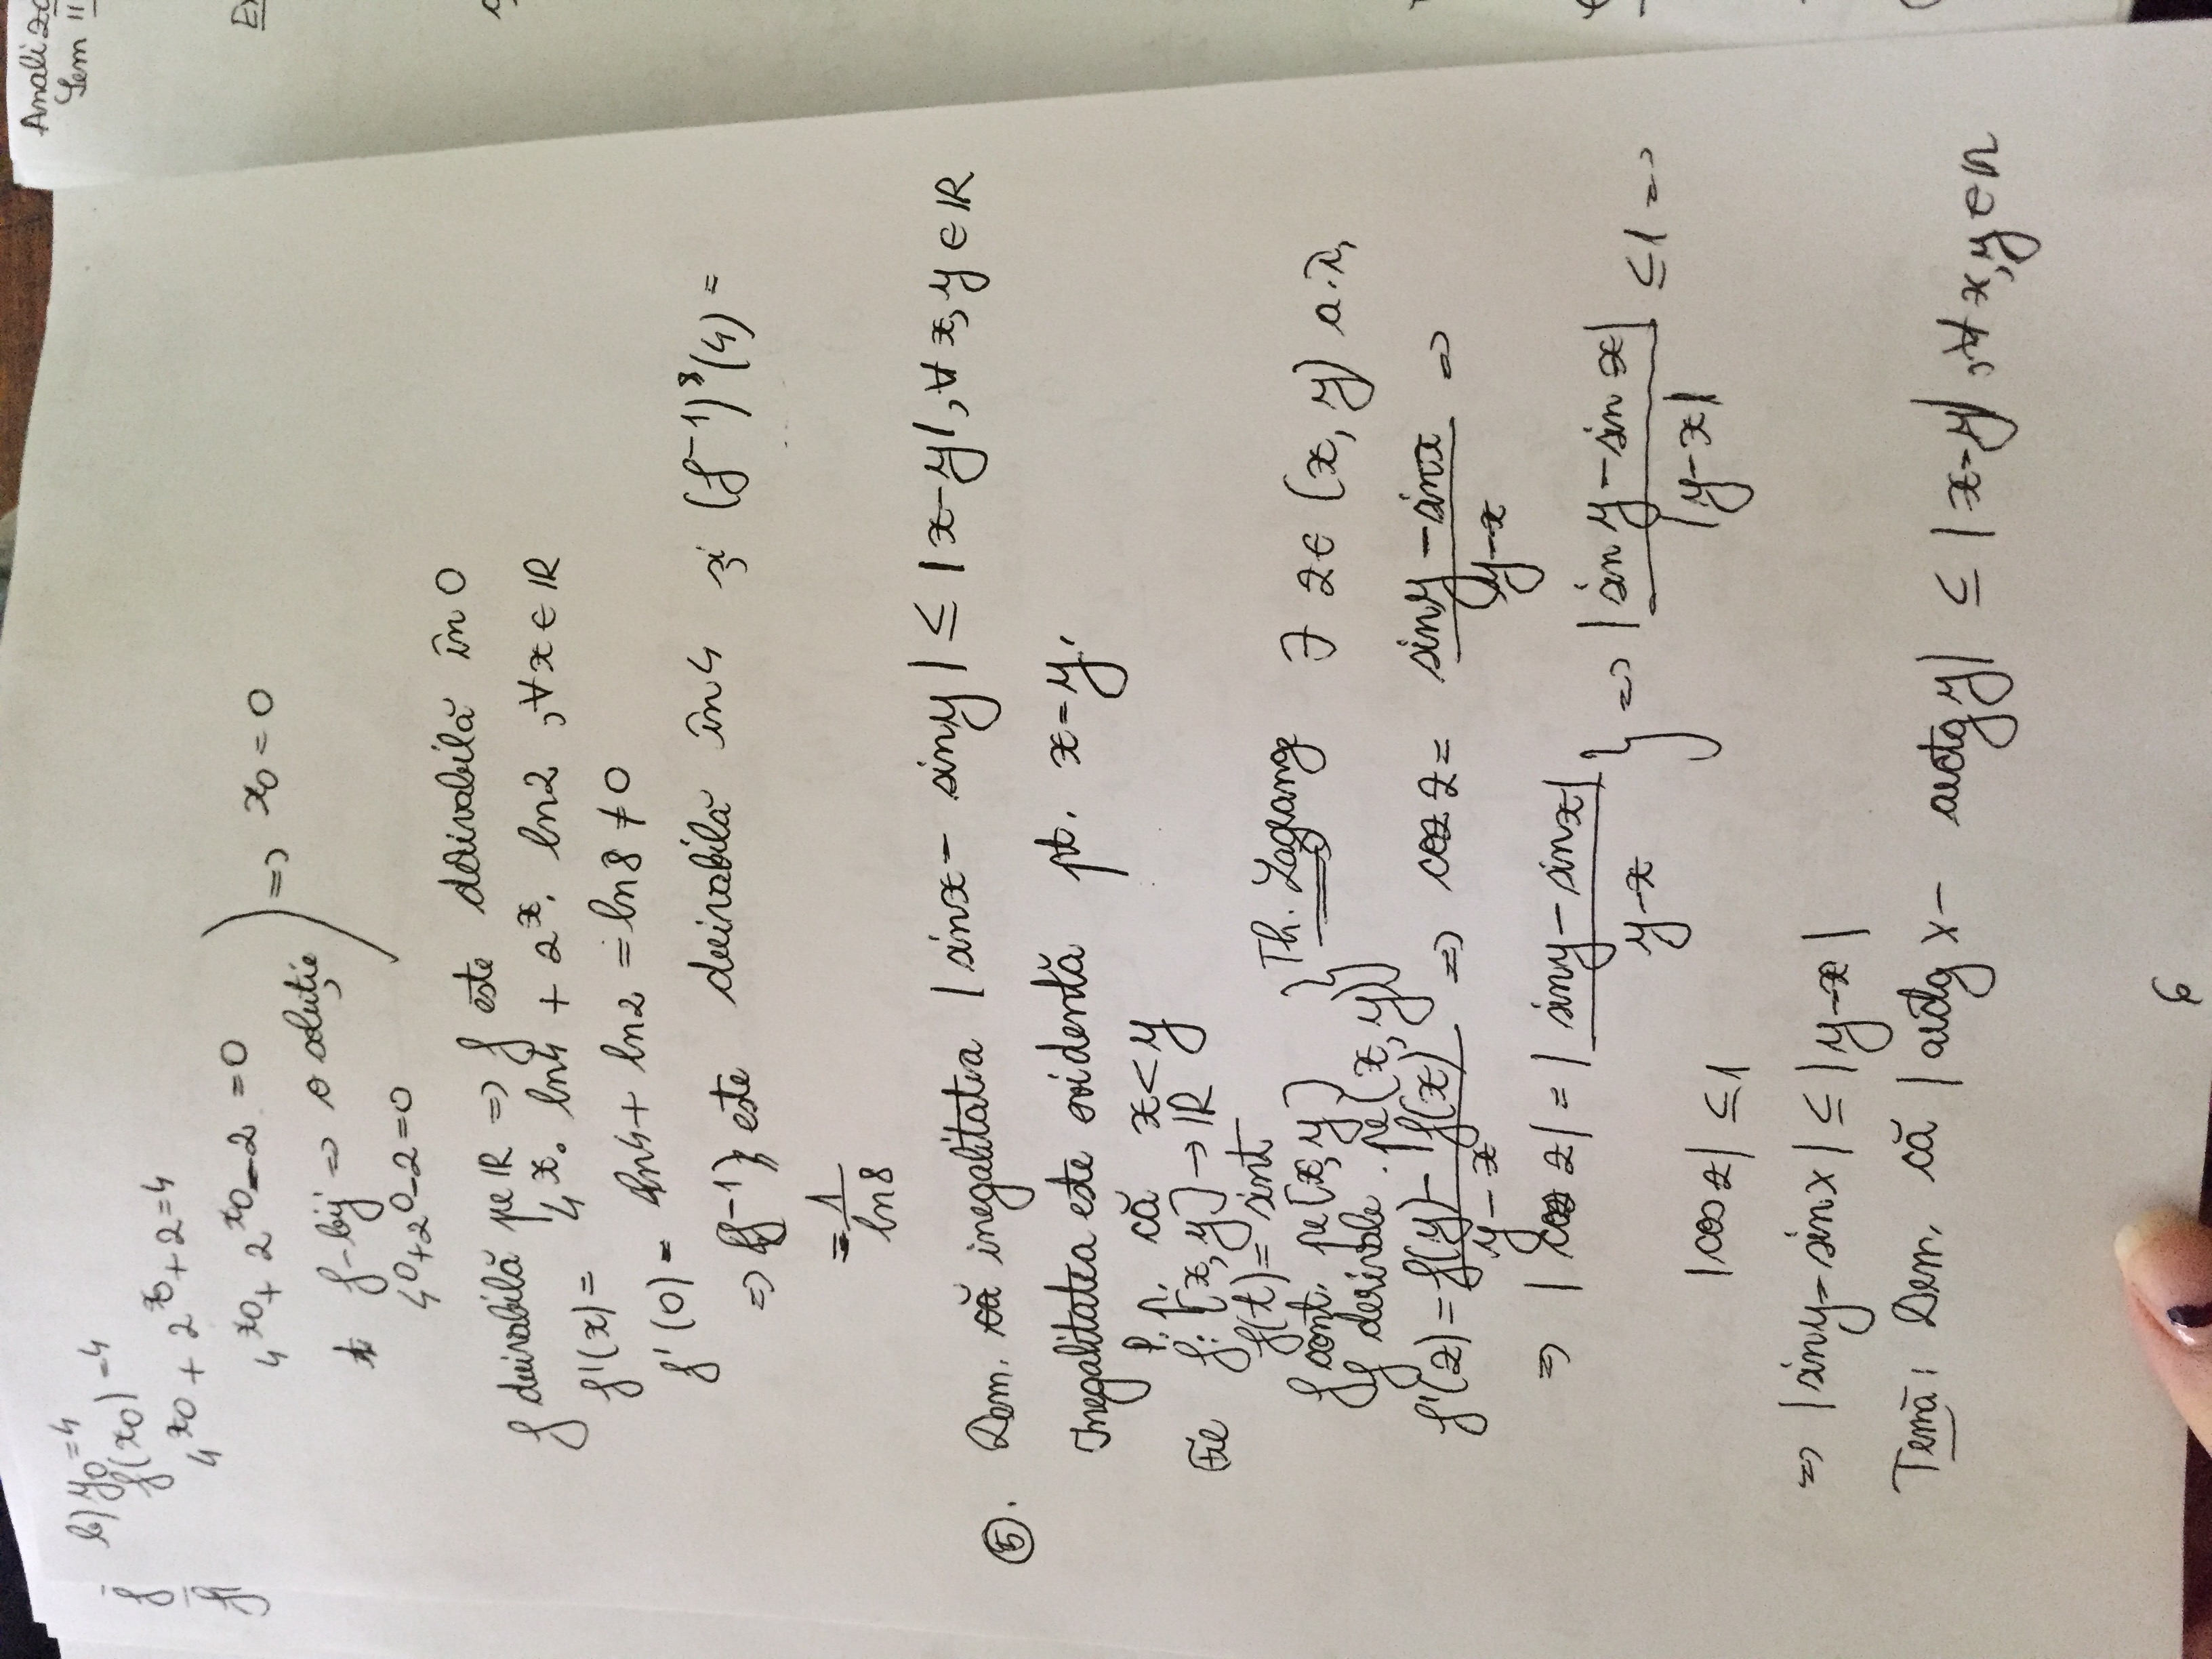 b) y₀ = 4
f(x₀) = 4
4^x₀ + 2^x₀ + 2 = 4
4^x₀ + 2^x₀ - 2 = 0
f-bij => o soluție
4⁰ + 2⁰ - 2 = 0
=> x₀ = 0
f derivabilă pe ℝ => f este derivabilă în 0
f'(x) = 4^x · ln4 + 2^x · ln2, ∀x ∈ ℝ
f'(0) = ln4 + ln2 = ln8 ≠ 0
=> (f⁻¹) este derivabilă în 4 și (f⁻¹)'(4) =
= 1/ln8
⑤. Dem. inegalitatea |sinx - siny| ≤ |x-y|, ∀x, y ∈ ℝ
Inegalitatea este evidentă pt. x = y.
P.p. că x < y
Fie f: [x, y] → ℝ
f(t) = sint
f cont. pe [x, y]
f derivale. pe (x, y)
} Th. Lagrange => ∃ z ∈ (x, y) a.î.
f'(z) = (f(y) - f(x))/(y - x) => cos z = (siny - sinx)/(y-x) =>
=> |cos z| = |siny - sinx|/(y-x)
|cos z| ≤ 1
} => |sin y - sin x|/|y-x| ≤ 1 =>
=> |siny - sinx| ≤ |y-x|
Temă: Dem. că |arctg x - arctg y| ≤ |x-y|, ∀x, y ∈ ℝ
6
Analiză
Sem II